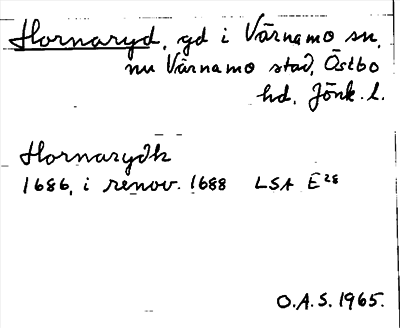 Hornaryd, gd i Värnamo sn,
nu Värnamo stad, Östbo
hd, Jönk. l.
Hornarydh
1686, i renov. 1688 LSA E28
O.A.S. 1965.